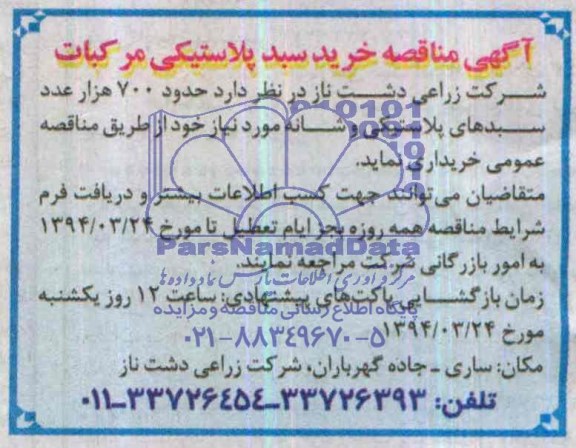 آگهی مناقصه خرید سبد پلاستیکی مرکبات
شرکت زراعی دشت ناز در نظر دارد حدود ۷۰۰ هزار عدد
سبدهای پلاستیکی و شانه مورد نیاز خود از طریق مناقصه
عمومی خریداری نماید.
متقاضیان می‌توانند جهت کسب اطلاعات بیشتر و دریافت فرم
شرایط مناقصه همه روزه بجز ایام تعطیل تا مورخ ۱۳۹۴/۰۳/۲۴
ParsNamadData
به امور بازرگانی شرکت مراجعه نمایند.
مرکز فرآوری اطلاعات پارس نماد داده ها
زمان بازگشایی پاکت‌های پیشنهادی: ساعت ۱۲ روز یکشنبه
پایگاه اطلاع رسانی مناقصه و مزایده
مورخ ۱۳۹۴/۰۳/۲۴
۰۲۱-۸۸۳۴۹۶۷۰-۵
مکان: ساری - جاده گهرباران، شرکت زراعی دشت ناز
تلفن: ۳۳۷۲۶۳۹۳-۳۳۷۲۶۴۵۴-۰۱۱